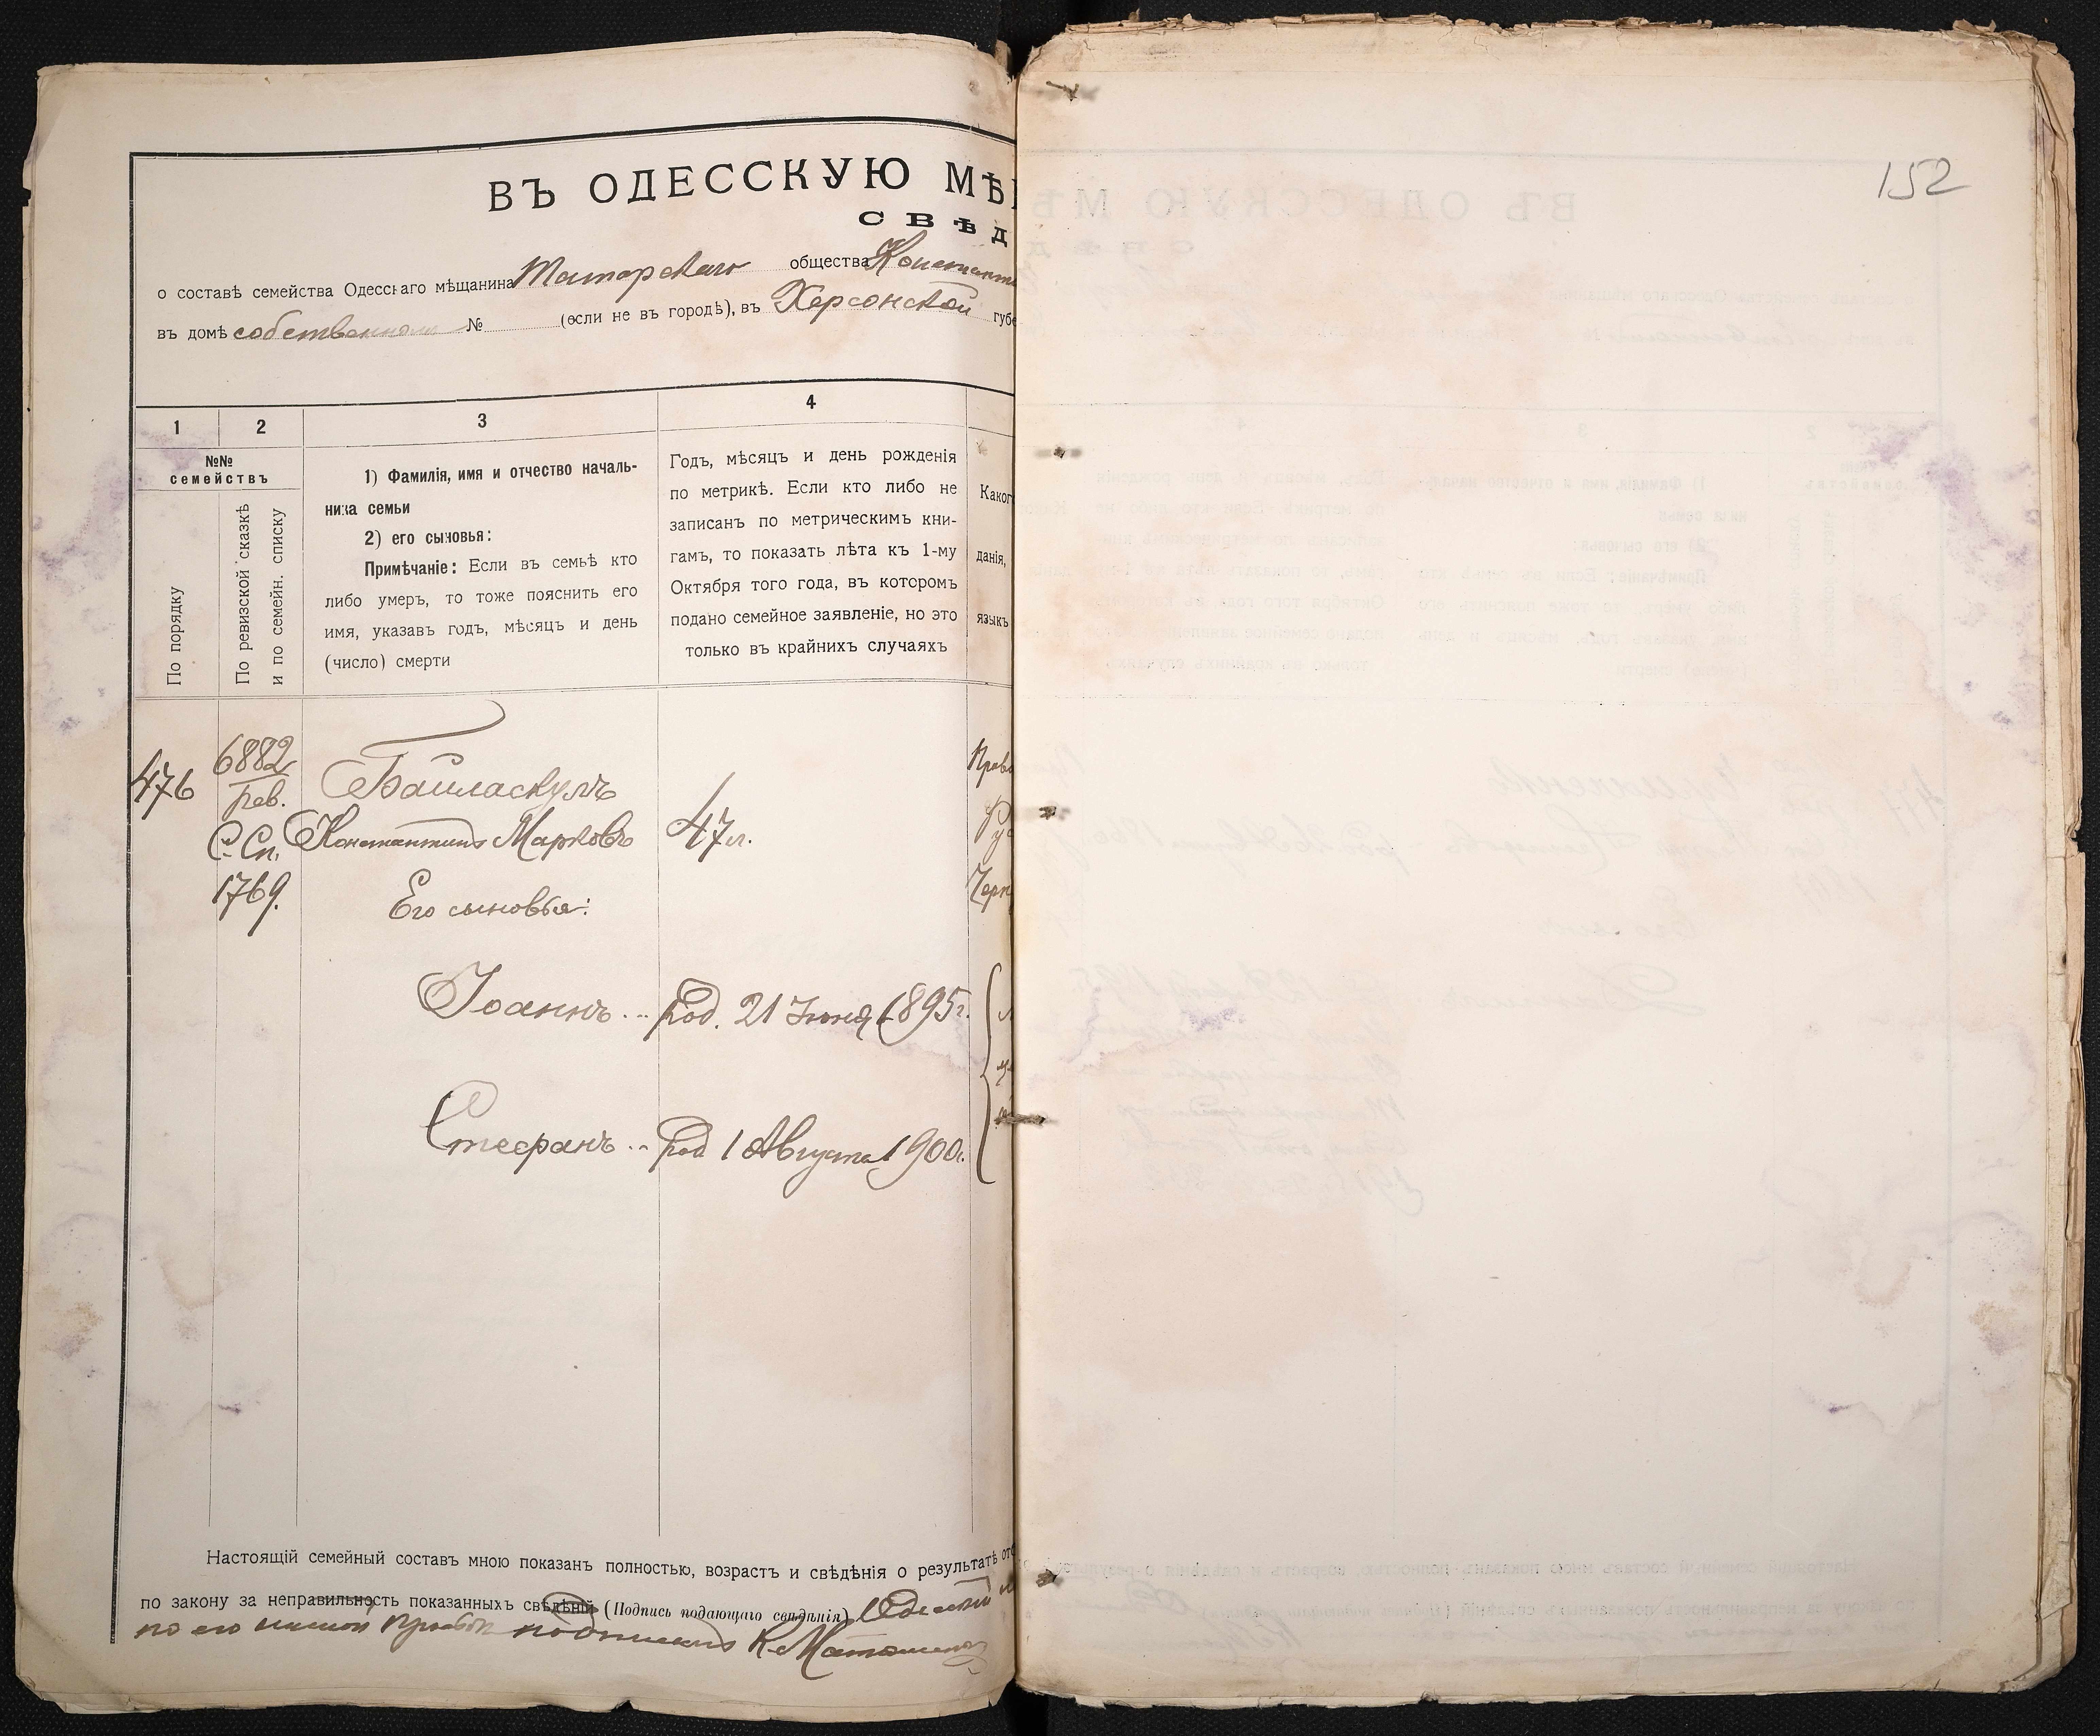 ВЪ ОДЕССКУЮ МѢ
СВѢД
о составѣ семейства Одесскаго мѣщанина Татарскаго общества Констант
въ домѣ собственномъ № (если не въ городѣ), въ Херсонской губе
1 2 3 4
№№ семействъ
По порядку
По ревизской сказкѣ и по семейн. списку
1) Фамилія, имя и отчество началь-
ника семьи
2) его сыновья:
Примѣчаніе: Если въ семьѣ кто
либо умеръ, то тоже пояснить его
имя, указавъ годъ, мѣсяцъ и день
(число) смерти
Годъ, мѣсяцъ и день рожденія
по метрикѣ. Если кто либо не
записанъ по метрическимъ кни-
гамъ, то показать лѣта къ 1-му
Октября того года, въ которомъ
подано семейное заявленіе, но это
только въ крайнихъ случаяхъ
Каког
данія,
языкъ
476 6882 Байласкулъ Право
рев.
С. Сп. Константинъ Марковъ 47 л. Ру
1769. Его сыновья: Черн
Іоаннъ .. род. 21 Іюня 1895 г.
Стефанъ .. род 1 Августа 1900 г.
Настоящій семейный составъ мною показанъ полностью, возрастъ и свѣдѣнія о результатѣ отб
по закону за неправильность показанныхъ свѣдѣній (Подпись подающаго свѣдѣнія) Одесскій
по его личной просьбѣ подписалъ К.
152